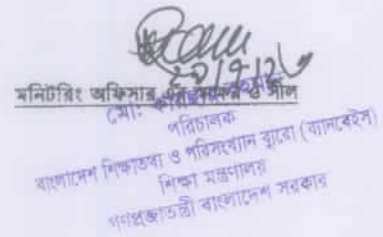 মনিটরিং অফিসার এর স্বাক্ষর ও সীল
মো:
পরিচালক
বাংলাদেশ শিক্ষাতথ্য ও পরিসংখ্যান ব্যুরো (ব্যানবেইস)
শিক্ষা মন্ত্রণালয়
গণপ্রজাতন্ত্রী বাংলাদেশ সরকার